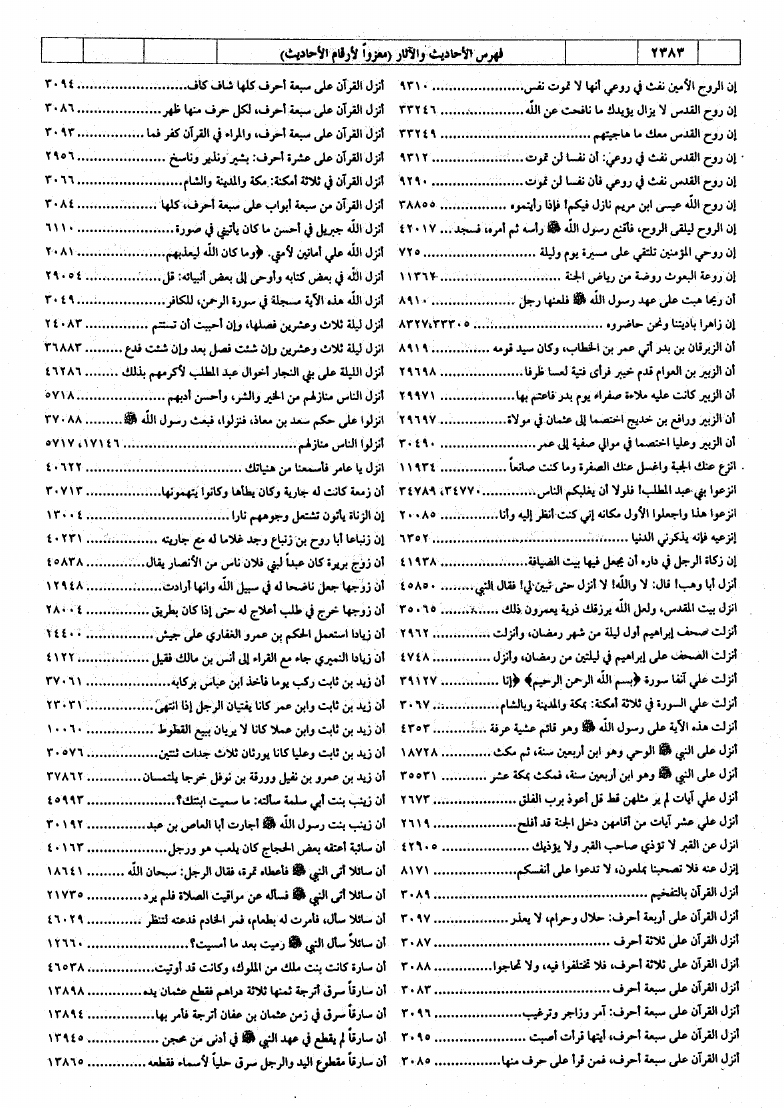 ٢٣٨٣
فهرس الأحاديث والآثار (معزواً لأرقام الأحاديث)
إن الروح الأمين نفث في روعي أنها لا تموت نفس ........ ٩٣١٠
إن روح القدس لا يزال يؤيدك ما نافحت عن الله ........ ٣٣٢٤٦
إن روح القدس معك ما هاجيتهم ........ ٣٣٢٤٩
إن روح القدس نفث في روعي: أن نفسا لن تموت ........ ٩٣١٢
إن روح القدس نفث في روعي فأن نفسا لن تموت ........ ٩٢٩٠
إن روح الله عيسى ابن مريم نازل فيكم! فإذا رأيتموه ........ ٣٨٨٥٥
إن الروح ليلقى الروح، فأقنع رسول الله ﷺ رأسه ثم أمره، فسجد ... ٤٢٠١٧
إن روحي المؤمنين تلتقي على مسيرة يوم وليلة ........ ٧٢٥
إن روعة البعوث روضة من رياض الجنة ........ ١١٣٦٢
أن ريحا هبت على عهد رسول الله ﷺ فلعنها رجل ........ ٨٩١٠
إن زاهرا باديتنا ونحن حاضروه ........ ٣٣٣٠٥، ٨٣٢٧
أن الزبرقان بن بدر أتي عمر بن الخطاب، وكان سيد قومه ........ ٨٩١٩
أن الزبير بن العوام قدم خيبر فرأى فتية لعسا ظرفا ........ ٢٩٦٩٨
أن الزبير كانت عليه ملاءة صفراء يوم بدر فاعتم بها ........ ٢٩٩٧١
أن الزبير ورافع بن خديج اختصما إلى عثمان في مولاة ........ ٢٩٦٩٧
أن الزبير وعليا اختصما في موالي صفية إلى عمر ........ ٣٠٤٩٠
انزع عنك الجبة واغسل عنك الصفرة وما كنت صانعاً ........ ١١٩٣٤
انزعوا بني عبد المطلب! فلولا أن يغلبكم الناس ........ ٣٤٧٧٠، ٣٤٧٨٩
انزعوا هذا واجعلوا الأول مكانه إني كنت أنظر إليه وأنا ........ ٢٠٠٨٥
إنزعيه فإنه يذكرني الدنيا ........ ٦٣٥٢
إن زكاة الرجل في داره أن يجعل فيها بيت الضيافة ........ ٤١٩٣٨
أنزل أبا وهب! قال: لا والله! لا أنزل حتى تبين لي! فقال النبي ... ٤٥٨٥٠
انزل بيت المقدس، ولعل الله يرزقك ذرية يعمرون ذلك ........ ٣٥٠٦٥
أنزلت صحف إبراهيم أول ليلة من شهر رمضان، وأنزلت ........ ٢٩٦٢
أنزلت الصحف على إبراهيم في ليلتين من رمضان، وأنزل ........ ٤٧٤٨
أنزلت علي آنفا سورة ﴿بسم الله الرحمن الرحيم﴾ ﴿إنا ........ ٣٩١٢٧
أنزلت علي السورة في ثلاثة أمكنة: بمكة والمدينة وبالشام ........ ٣٠٦٧
أنزلت هذه الآية على رسول الله ﷺ وهو قائم عشية عرفة ........ ٤٣٥٣
أنزل على النبي ﷺ الوحي وهو ابن أربعين سنة، ثم مكث ........ ١٨٧٢٨
أنزل على النبي ﷺ وهو ابن أربعين سنة، فمكث بمكة عشر ........ ٣٥٥٣١
أنزل علي آيات لم ير مثلهن قط قل أعوذ برب الفلق ........ ٢٦٧٣
أنزل علي عشر آيات من أقامهن دخل الجنة قد أفلح ........ ٢٦١٩
انزل عن القبر لا تؤذي صاحب القبر ولا يؤذيك ........ ٤٢٩٠٥
إنزل عنه فلا تصحبنا بملعون، لا تدعوا على أنفسكم ........ ٨١٧١
أنزل القرآن بالتفخيم ........ ٣٠٨٩
أنزل القرآن على أربعة أحرف: حلال وحرام، لا يعذر ........ ٣٠٩٧
أنزل القرآن على ثلاثة أحرف ........ ٣٠٨٧
أنزل القرآن على ثلاثة أحرف، فلا تختلفوا فيه، ولا تحاجوا ........ ٣٠٨٨
أنزل القرآن على سبعة أحرف ........ ٣٠٨٣
أنزل القرآن على سبعة أحرف: آمر وزاجر وترغيب ........ ٣٠٩٦
أنزل القرآن على سبعة أحرف، أيتها قرأت أصبت ........ ٣٠٩٥
أنزل القرآن على سبعة أحرف، فمن قرأ على حرف منها ........ ٣٠٨٥
أنزل القرآن على سبعة أحرف كلها شاف كاف ........ ٣٠٩٤
أنزل القرآن على سبعة أحرف، لكل حرف منها ظهر ........ ٣٠٨٦
أنزل القرآن على سبعة أحرف، والمراء في القرآن كفر فما ........ ٣٠٩٣
أنزل القرآن على عشرة أحرف: بشير ونذير وناسخ ........ ٢٩٥٦
أنزل القرآن في ثلاثة أمكنة: مكة والمدينة والشام ........ ٣٠٦٦
أنزل القرآن من سبعة أبواب على سبعة أحرف، كلها ........ ٣٠٨٤
أنزل الله جبريل في أحسن ما كان يأتيني في صورة ........ ٦١١٠
أنزل الله علي أمانين لأمتي. ﴿وما كان الله ليعذبهم ........ ٢٠٨١
أنزل الله في بعض كتابه وأوحى إلى بعض أنبيائه: قل ........ ٢٩٠٥٤
أنزل الله هذه الآية مسجلة في سورة الرحمن، للكافر ........ ٣٠٤٩
انزل ليلة ثلاث وعشرين فصلها، وإن أحببت أن تستتم ........ ٢٤٠٨٣
انزل ليلة ثلاث وعشرين وإن شئت فصل بعد وإن شئت فدع ........ ٣٦٨٨٣
انزل الليلة على بني النجار أخوال عبد المطلب لأكرمهم بذلك ........ ٤٦٢٨٦
أنزل الناس منازلهم من الخير والشر، وأحسن أدبهم ........ ٥٧١٨
انزلوا على حكم سعد بن معاذ، فنزلوا، فبعث رسول الله ﷺ ........ ٣٧٠٨٨
أنزلوا الناس منازلهم ........ ١٧١٤٦، ٥٧١٧
انزل يا عامر فأسمعنا من هنياتك ........ ٤٠٦٢٢
أن زمعة كانت له جارية وكان يطأها وكانوا يتهمونها ........ ٣٠٧١٣
إن الزناة يأتون تشتعل وجوههم نارا ........ ١٣٠٠٤
إن زنباعا أبا روح بن زنباع وجد غلاما له مع جاريته ........ ٤٠٢٣١
أن زوج بريرة كان عبداً لبني فلان ناس من الأنصار يقال ........ ٤٥٨٣٨
أن زوجها جعل ناضحا له في سبيل الله وانها أرادت ........ ١٢٩٤٨
أن زوجها خرج في طلب أعلاج له حتى إذا كان بطريق ........ ٢٨٠٠٤
أن زيادا استعمل الحكم بن عمرو الغفاري على جيش ........ ٢٤٤٠٠
أن زيادا النميري جاء مع القراء إلى أنس بن مالك فقيل ........ ٤١٢٢
أن زيد بن ثابت ركب يوما فأخذ ابن عباس بركابه ........ ٣٧٠٦١
أن زيد بن ثابت وابن عمر كانا يفتيان الرجل إذا انتهى ........ ٢٣٠٣١
أن زيد بن ثابت وابن عملا كانا لا يريان ببيع القطوط ........ ١٠٠٦٠
أن زيد بن ثابت وعليا كانا يورثان ثلاث جدات ثنتين ........ ٣٠٥٧٦
أن زيد بن عمرو بن نفيل وورقة بن نوفل خرجا يلتمسان ........ ٣٧٨٦٢
أن زينب بنت أبي سلمة سألته: ما سميت ابنتك؟ ........ ٤٥٩٩٣
أن زينب بنت رسول الله ﷺ أجارت أبا العاص بن عبد ........ ٣٠١٩٢
أن سائبة أعتقه بعض الحجاج كان يلعب هو ورجل ........ ٤٠١٦٣
أن سائلا أتى النبي ﷺ فأعطاه تمرة، فقال الرجل: سبحان الله ........ ١٨٦٤١
أن سائلا أتى النبي ﷺ فسأله عن مواقيت الصلاة فلم يرد ........ ٢١٧٣٥
أن سائلا سأل، فأمرت له بطعام، فمر الخادم فدعته لتنظر ........ ٤٦٠٢٩
أن سائلاً سأل النبي ﷺ رميت بعد ما أمسيت؟ ........ ١٢٦٦٠
أن سارة كانت بنت ملك من الملوك، وكانت قد أوتيت ........ ٤٦٥٣٨
أن سارقاً سرق أترجة ثمنها ثلاثة دراهم فقطع عثمان يده ........ ١٣٨٩٨
أن سارقاً سرق في زمن عثمان بن عفان أترجة فأمر بها ........ ١٣٨٩٤
أن سارقاً لم يقطع في عهد النبي ﷺ في أدنى من محجن ........ ١٣٩٤٥
أن سارقاً مقطوع اليد والرجل سرق حلياً لأسماء فقطعه ........ ١٣٨٦٥